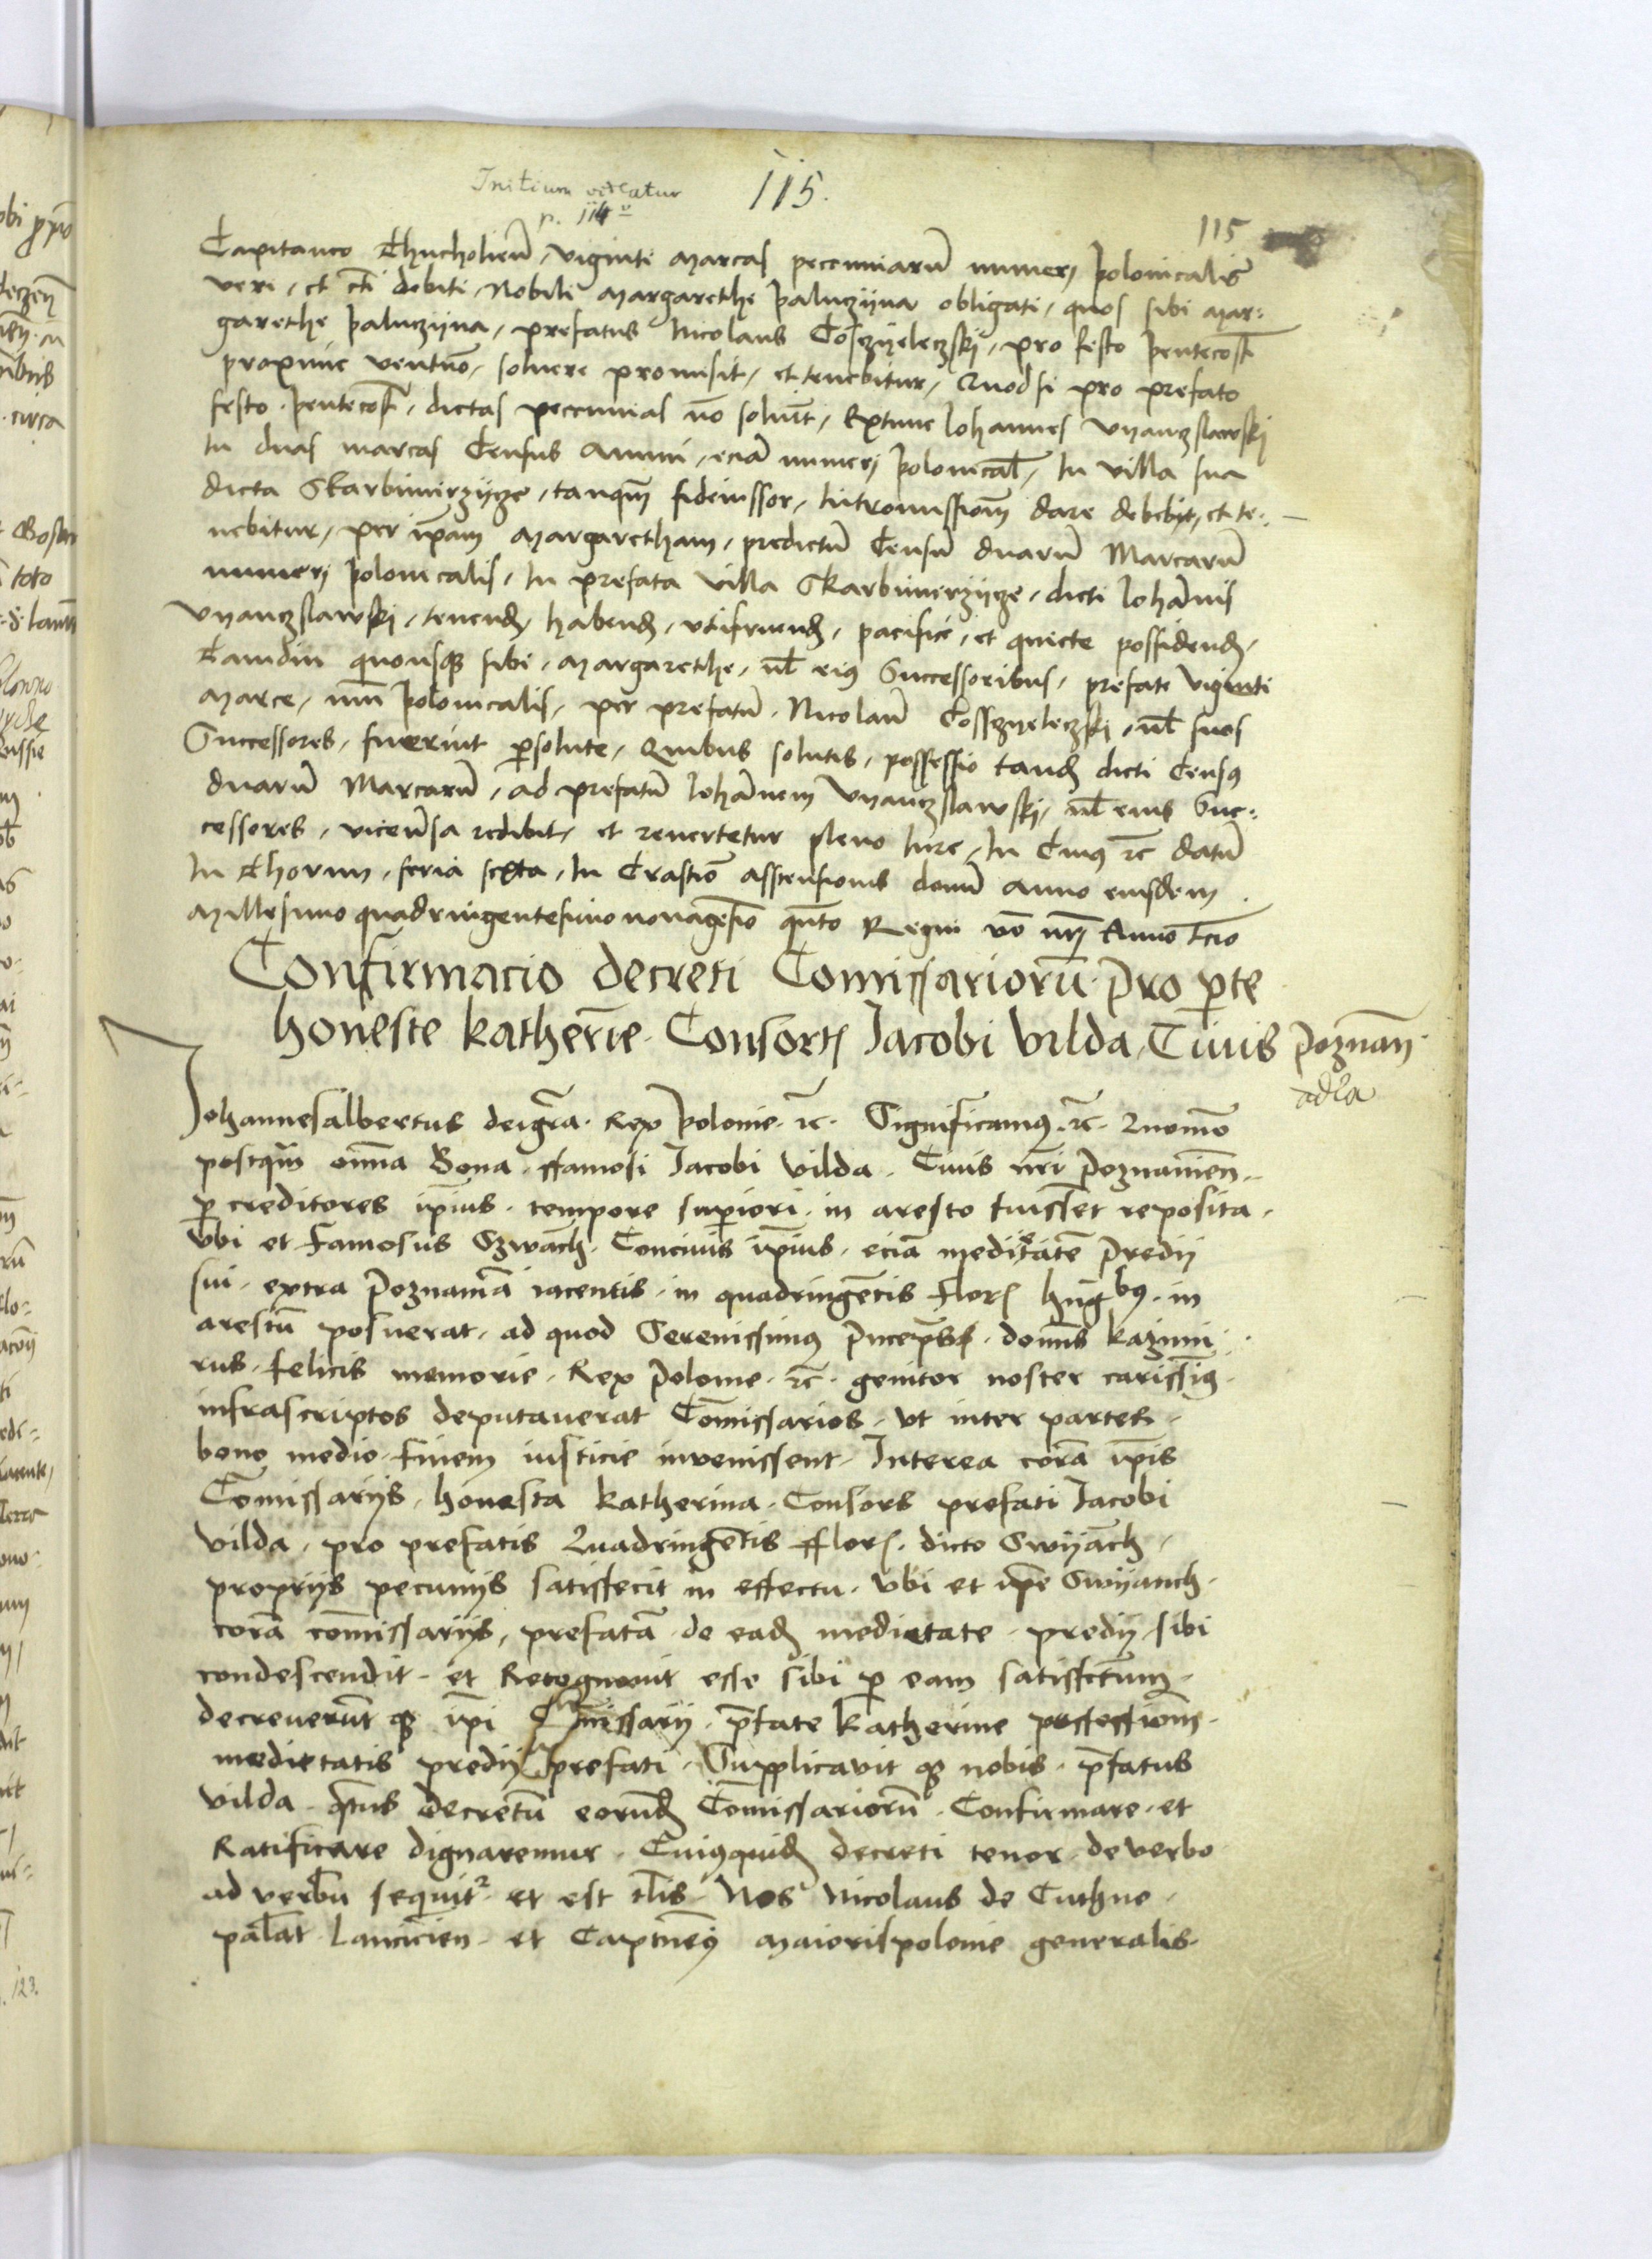 Initium videatur
p. 114 v
115.
115
Capitaneo Thucholien̄, viginti marcas pecuniarū numeri polonicalis
veri, et c̄ti debiti, Nobili Margarethe paluczÿna obligati, quos sibi Mar:
garethe paluczijna, prefatus Nicolaus Cosczÿeleczskj, pro festo pentecost̄
proxime ventu͞o, soluere promisit, et tenebitur, Quod si pro prefato
festo pentecost̄, dictas peccunias nō soluīt, Extunc Johannes Vyanczslawskj
In duas marcas Census Annui, eciā numeri polonical̄, In villa sua
dicta Skarbimirzÿcze, tanq̄m fideiussor, Intromissiom̄ dare debebit, et te:
nebitur, per ip̄am Margaretham, predictū Censū duarū Marcarū
numeri polonicalis, In prefata villa Skarbimerzÿcze, dicti Johānis
Vyanczslawskj, tenend̄, habend̄, utifruend̄, pacifice, et quiete possidend̄,
Tamdiu quousq̄ sibi, Margarethe, ul̄ eiꝯ Successoribus, prefate viginti
Marce, nūi polonicalis, per prefatū Nicolaū Cossczÿeleczskj, ul̄ suos
Successores, fuerint p̱solute, Quibus solutis, possessio tand̄ dicti Censꝯ
duarū Marcarū, ad prefatū Johānem Vyanczslawskj, ul̄ eius Suc:
cessores, vicev̄sa redibit, et revertetur pleno Jure, In Cuiꝯ ⁊c̄ datū
In Thorun, feria sexta, In Crastīo asscensionis domī anno eiusdem
Millesimo quadringentesimo nonagesīo qūto Regni vō nr̄i Anno t̄cio
Confirmacio decreti Comissariorū pro p̱te
honeste katherīe Consortꝭ Jacobi Vilda Civis poznan̄
adla
Johannesalbertus dei gr̄a Rex polonie ⁊c̄ Significamꝯ ⁊c̄ Quomō
postq̄m om̄ia Bona ffamosi Jacobi Vilda Civis nr̄i poznanien̄
p̱ creditores ip̄ius tempore sup̱iori in aresto fuisset reposita
vbi et famosus Szwāch Concivis ip̄ius eciā medietatē predij
sui extra poznaniā iacentis in quadringētis florꝭ hūgbꝯ in
arestū posuerat ad quod Serenissimꝯ princeps domīs kazimi
rus felicis memorie Rex polonie ⁊c̄ genitor noster carissīꝯ
infrascriptos deputaverat Comissarios ut inter partes
bono medio finem iusticie invenissent Interea corā ip̄is
Comissarijs honesta katherina Consors prefati Jacobi
Vilda pro prefatis Quadringētis fflorꝭ dicto Swÿāch
proprijs pecunijs satisfecit in effectu vbi et ip̄e Swijanch
corā comissarijs prefatā de ead̄ medietate predij sibi
condescendit et Recognovit esse sibi p̱ eam satisfctum
decreverūt q̄ ip̄i Comissarij p̄fate katherine possessiom̄
medietatis predij prefati Supplicavit q̄ nobis p̄fatus
Vilda q̄tus decretū eorūd̄ Comissariorū Confirmare et
Ratificare dignaremur Cuiꝯquid̄ decreti tenor de verbo
ad verbū sequit² et est tl̄is Nos Nicolaus de Cuthno
palat̄ Lancicien̄ et Captneꝯ Maiorispolonie generalis